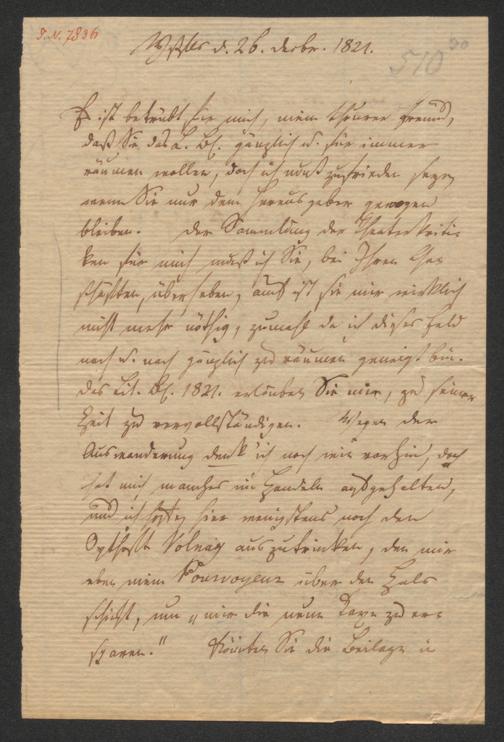 I.N. 7836
d. 26. Decbr. 1821.
510
Es ist betrübt für mich, mein theurer Freund,
daß Sie das L. Bl. gänzlich u. für immer
räumen wollen, doch ich muß zufrieden seyn
wenn Sie nur dem Herausgeber gewogen
bleiben. Der Sammlung der Theaterkriti-
ken für mich muß ich Sie, bei Ihren Ge
schäften, überheben, auch ist sie mir wirklich
nicht mehr nöthig, zumahl da ich dieses Feld
nach u. nach gänzlich zu räumen geneigt bin.
Das Lit. Bl. 1821. erlauben Sie mir, zu seiner
Zeit zu vervollständigen. Wegen der
Auswanderung denk ich noch wie vorhin, doch
hat mich manches im Handeln aufgehalten,
und ich hoffe hier wenigstens noch den
Volnay auszutrinken, den mir
eben mein über den Hals
schickt, um „mir die neue Taxe zu er-
sparen.“ Könnten Sie die Beilage in